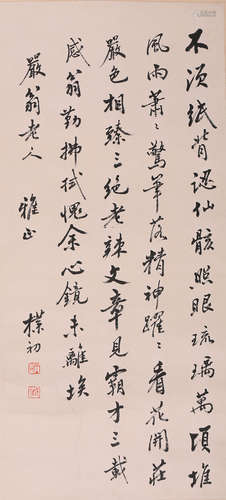 不須紙背認仙骸照眼琉璃萬頃堆
風雨蕭〻驚筆落精神躍〻看花開莊
嚴色相臻三絕老辣文章見霸才三載
感翁勤拂拭愧余心鏡未離埃
嚴翁老人 雅正 樸初